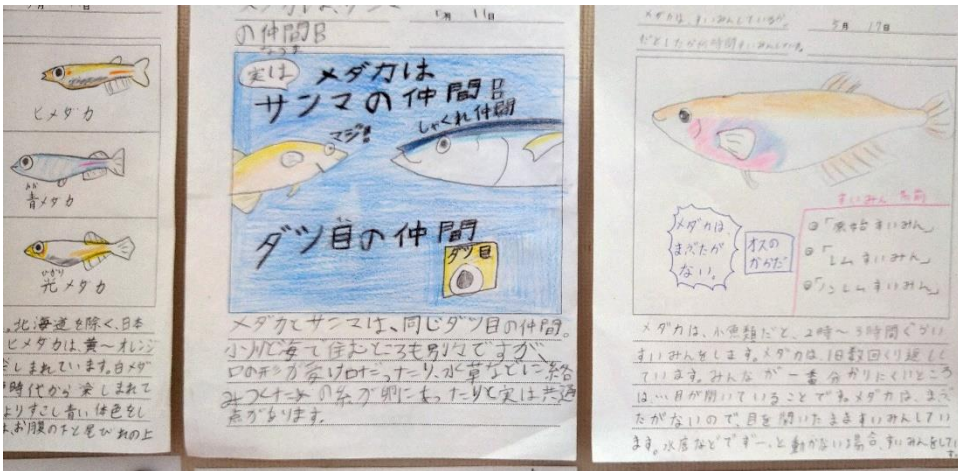 ヒメダカ
青メダカ
光メダカ
北海道を除く、日本
ヒメダカは、黄〜オレンジ
しまれています。白メダ
時代から楽しまれて
よりすこし青い体色をし
お腹の下と尾びれの上
の仲間
5月 11日
実は
メダカは
サンマの仲間
マジ!
しゃくれ仲間
ダツ目の仲間
ダツ目
メダカとサンマは、同じダツ目の仲間。
小川と海で住むところも別々ですが、
口の形が受け口だったり、水草などに絡
みつくための糸が卵にあったりと実は共通
点があります。
メダカは、すいみんしているか
5月 17日
メダカは、
まぶたが
ない。
オスの
からだ
すいみん 名前
「原始すいみん」
「レムすいみん」
「ノンレムすいみん」
メダカは、小魚類だと、2時〜3時間ぐらい
すいみんをします。メダカは、1日数回くり返して
ています。みんなが一番分かりにくいところ
は…目が開いていることです。メダカは、まぶ
たがないので、目を開いたますいみんしてい
ます。水底などでずーっと動かない場合、すいみんをしてい